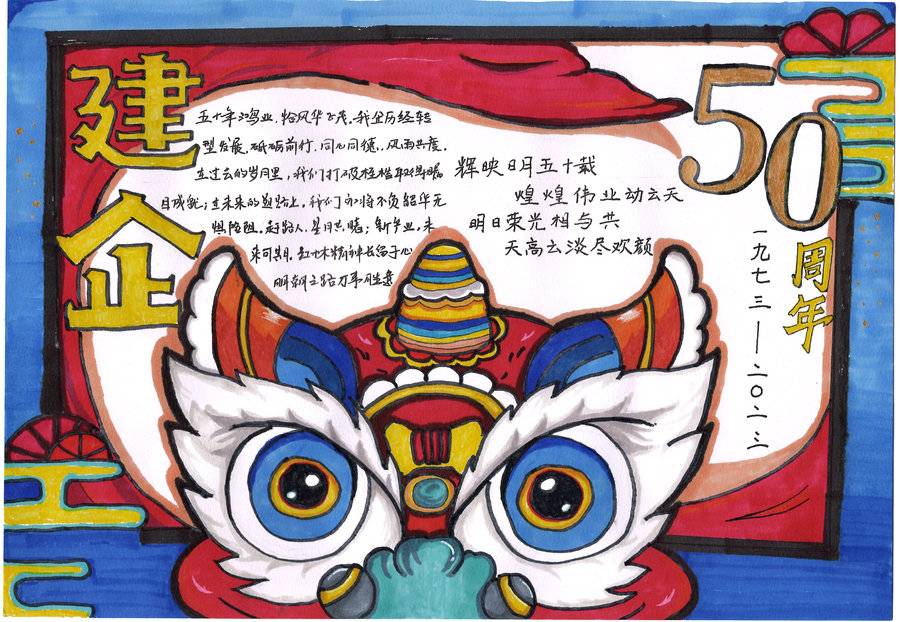 建企
50
周年
一九七三——二〇二三
五十年鸿业,恰风华正茂.我企历经转
型发展.砥砺前行.同心同德.,风雨共度.
在过去的岁月里,我们打破桎梏取得耀
目成就;在未来的道路上,我们亦将不负韶华无
惧险阻.赶路人,星月共晓;新产业,未
来可期.精神长留于心
明朝之路万事胜意
辉映日月五十载
煌煌伟业动云天
明日荣光相与共
天高云淡尽欢颜